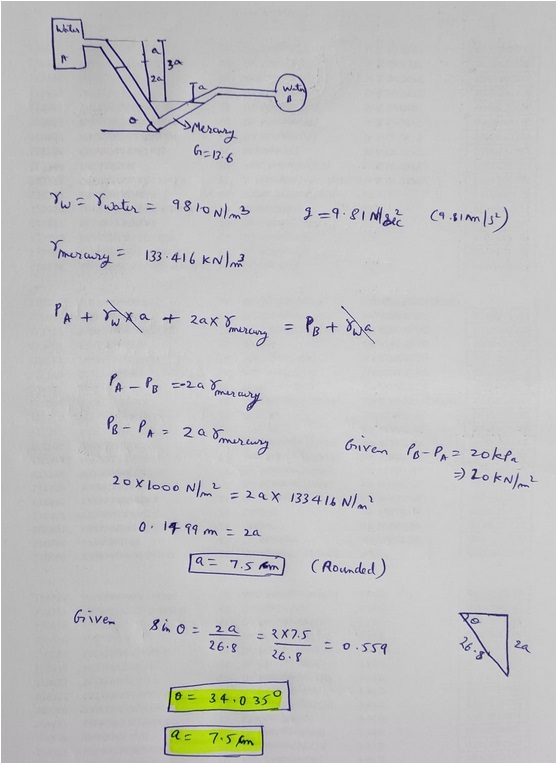 Water
A
a
2a
3a
a
Water
B
θ
Mercury
G=13.6
γw = γwater = 9810 N/m³ g = 9.81 N/sec² (9.81m/s²)
γmercury = 133.416 KN/m³
PA + γw × a + 2a× γmercury = PB + γw a
PA - PB = -2a γmercury
PB - PA = 2a γmercury
Given PB - PA = 20kPa
⇒ 20 KN/m²
20×1000 N/m² = 2a× 133416 N/m²
0.1499 m = 2a
a = 7.5 cm (Rounded)
Given Sin θ = 2a/26.8 = 2×7.5/26.8 = 0.559
θ
26.8
2a
θ = 34.035°
a = 7.5 cm